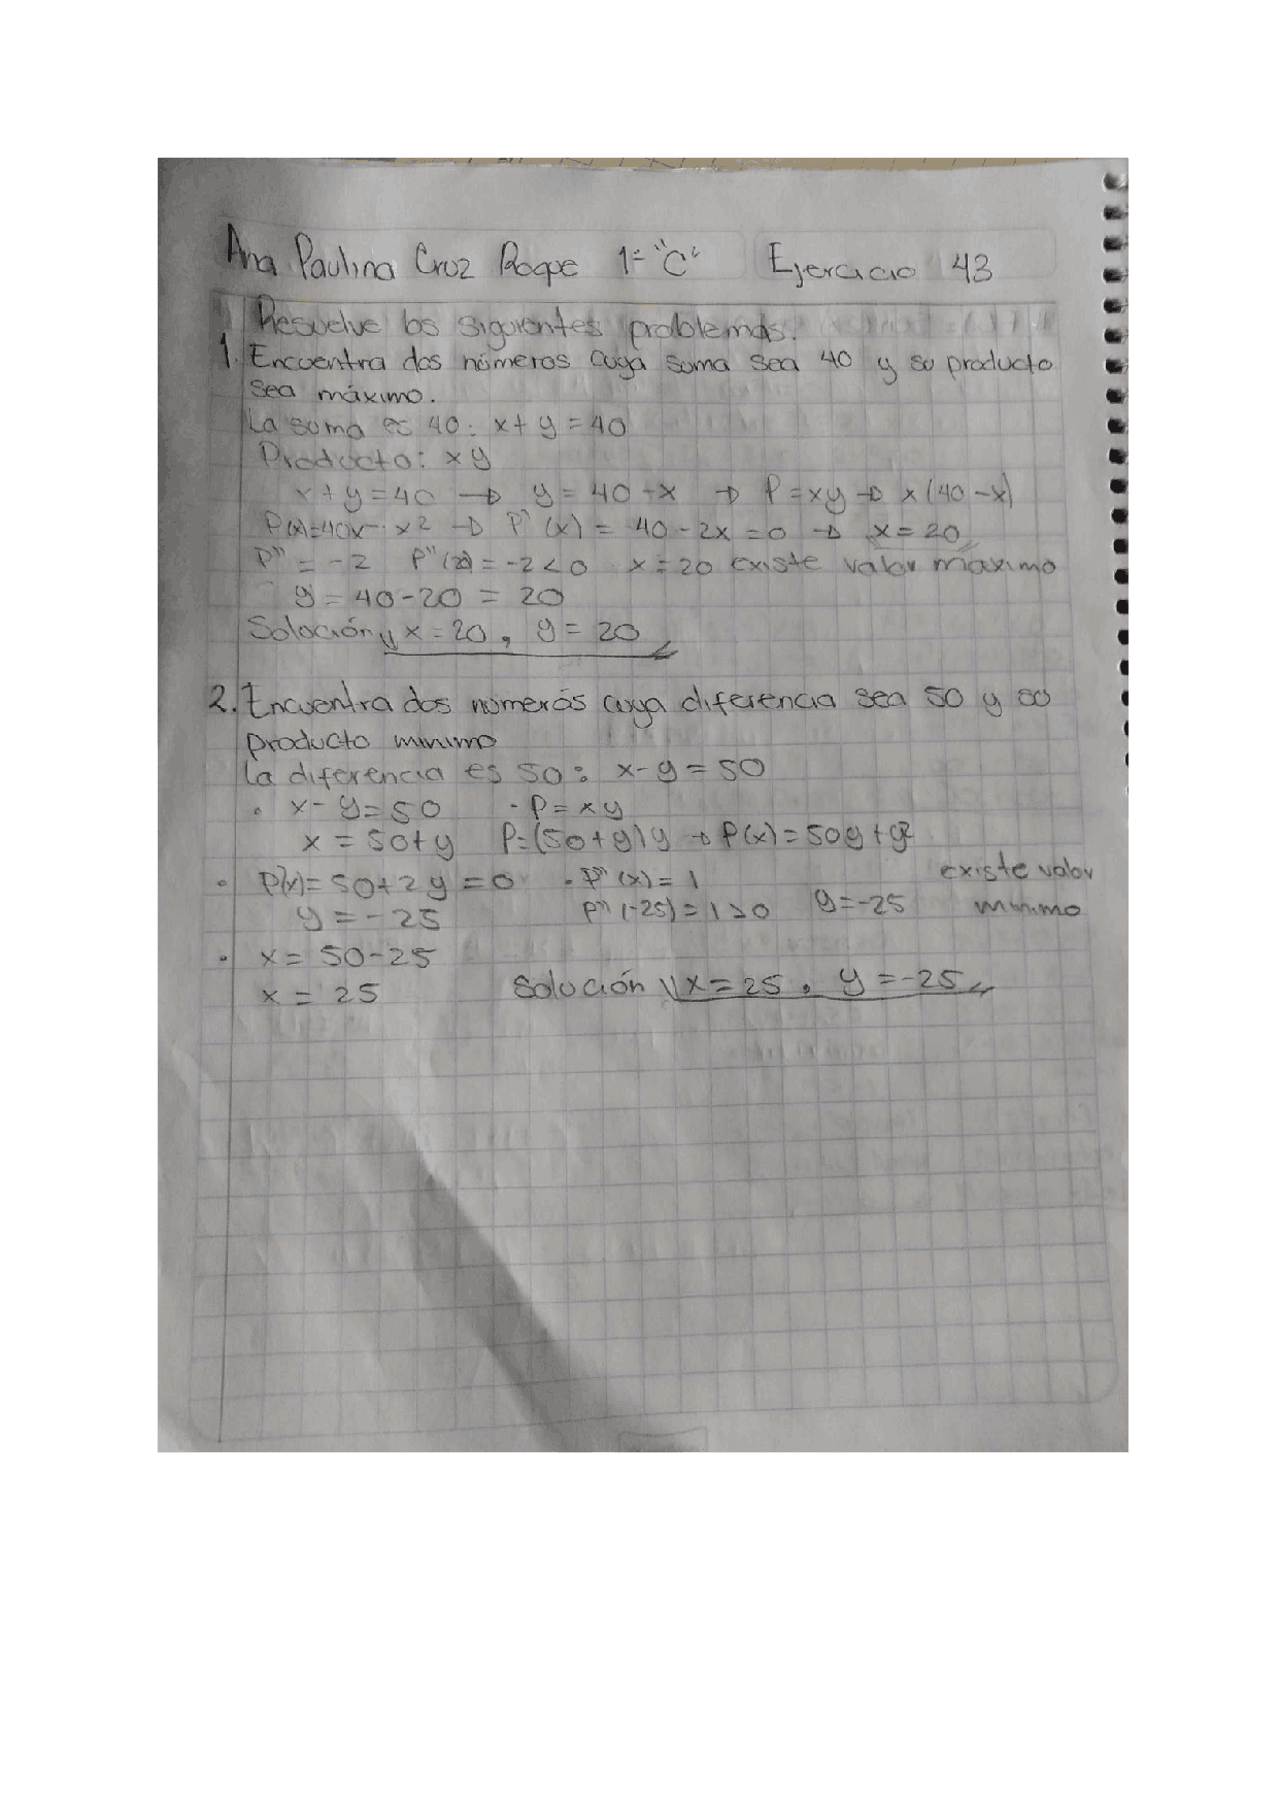 Ana Paulina Cruz Roque 1º "C" Ejercicio 43
Resuelve los siguientes problemas.
1. Encuentra dos números cuya suma sea 40 y su producto
sea máximo.
La suma es 40: x + y = 40
Producto: xy
x + y = 40 → y = 40 - x → P = xy → x(40 - x)
P(x) = 40x - x² → P'(x) = 40 - 2x = 0 → x = 20
P'' = -2 P''(20) = -2 < 0 x = 20 existe valor máximo
y = 40 - 20 = 20
Solución x = 20, y = 20
2. Encuentra dos números cuya diferencia sea 50 y su
producto minimo
La diferencia es 50: x - y = 50
• x - y = 50 • P = xy
x = 50 + y P = (50 + y) y → P(x) = 50y + y²
• P'(x) = 50 + 2y = 0 • P''(x) = 1 existe valor
y = -25 P''(-25) = 1 > 0 y = -25 minimo
• x = 50 - 25
x = 25 Solución x = 25, y = -25